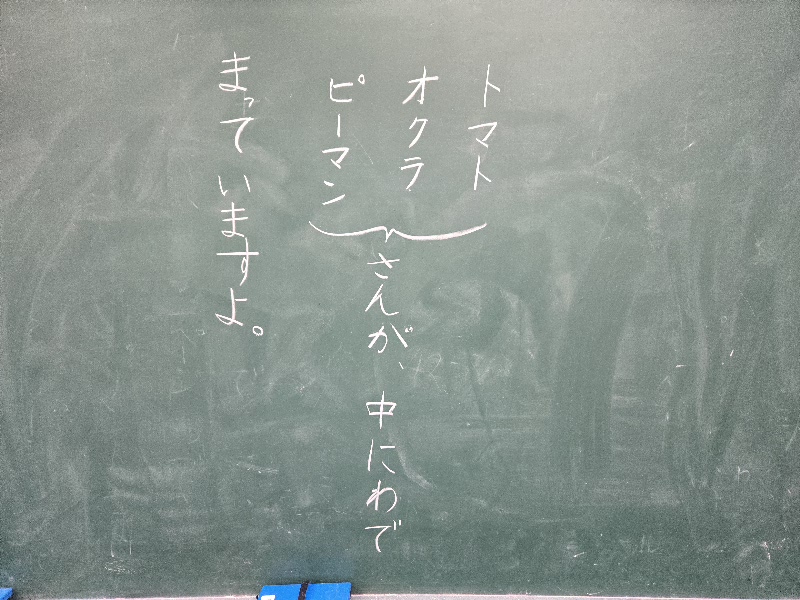 トマト
オクラ
ピーマン
さんが、中にわで
まっていますよ。